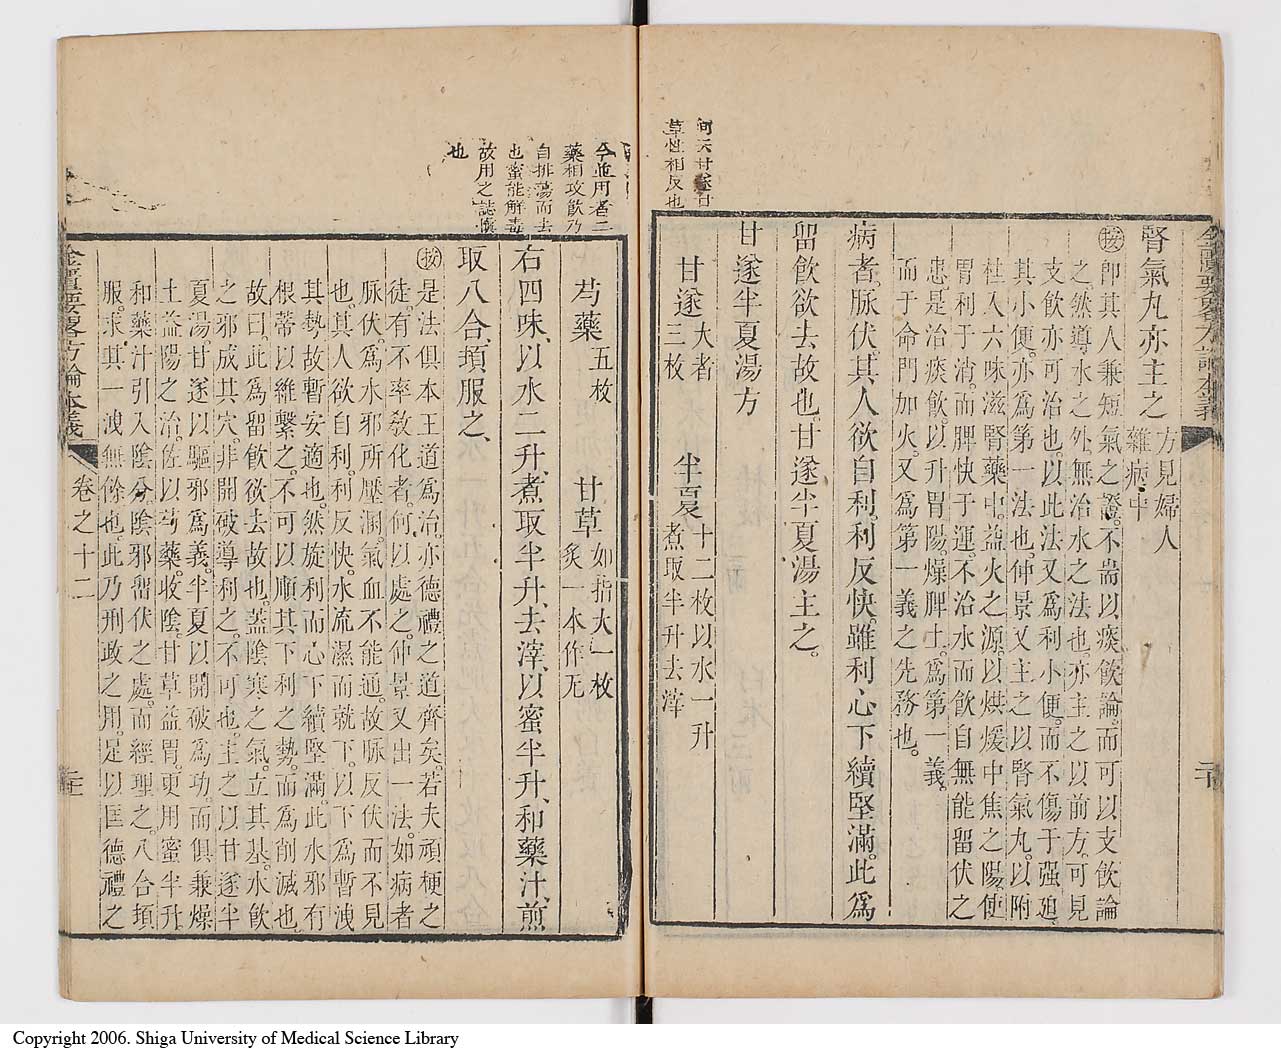 金匱要畧方論本義
二十
腎氣丸亦主之
方見婦人
雜病中
按卽其人兼短氣之證。不耑以痰飲論。而可以支飲論
之。然導水之外。無治水之法也。亦主之以前方。可見
支飲亦可治也。以此法又爲利小便。而不傷于强廹
其小便。亦爲第一法也。仲景又主之以腎氣丸。以附
桂入六味滋腎藥中。益火之源。以烘煖中焦之陽。便
胃利于消。而脾快于運。不治水而飲自無能留伏之
患。是治痰飲。以升胃陽。燥脾土。爲第一義。
而于命門加火。又爲第一義之先務也。
病者。脉伏。其人欲自利。利反快。雖利心下續堅滿。此爲
留飲欲去。故也。甘遂半夏湯主之。
甘遂半夏湯方
甘遂 大者三枚 半夏 十二枚以水一升煮取半升去滓
草性相反也
今並用者二
藥相攻飲乃
自排蕩而去
也蜜能解毒
故用之誌慎
也
芍藥 五枚 甘草 如指大一枚炙一本作无
右四味、以水二升、煮取半升、去滓、以蜜半升、和藥汁、煎
取八合、頓服之、
按是法俱本王道爲治。亦德禮之道齊矣。若夫頑梗之
徒。有不率敎化者。何以處之。仲景又出一法。如病者
脉伏。爲水邪所壓溷。氣血不能通。故脉反伏而不見
也。其人欲自利。利反快。水流濕而就下。以下爲暫洩
其勢。故暫安適也。然旋利而心下續堅滿。此水邪有
根蒂以維繫之。不可以順其下利之勢。而爲削滅也。
故曰。此爲留飲欲去故也。蓋陰寒之氣。立其基。水飲
之邪。成其穴。非開破導利之。不可也。主之以甘遂半
夏湯。甘遂以驅邪爲義。半夏以開破爲功。而俱兼燥
土益陽之治。佐以芍藥。收陰。甘草益胃。更用蜜半升。
和藥汁引入陰分陰邪留伏之處。而經理之。八合頓
服。求其一洩無餘也。此乃刑政之用。足以匡德禮之
金匱要畧方論本義
卷之十二
二十一
Copyright 2006. Shiga University of Medical Science Library